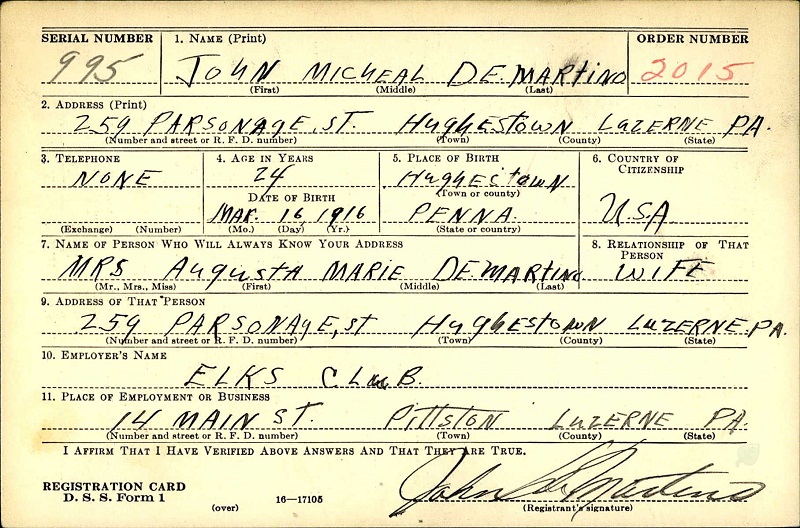 SERIAL NUMBER 1. NAME (Print) ORDER NUMBER
995 JOHN MICHEAL DEMARTINO 2015
(First) (Middle) (Last)
2. ADDRESS (Print)
259 PARSONAGE, ST. HUGHESTOWN LUZERNE PA.
(Number and street or R. F. D. number) (Town) (County) (State)
3. TELEPHONE 4. AGE IN YEARS 5. PLACE OF BIRTH 6. COUNTRY OF CITIZENSHIP
NONE 24 HUGHESTOWN
DATE OF BIRTH (Town or county)
MAR. 16, 1916 PENNA. U.S.A
(Exchange) (Number) (Mo.) (Day) (Yr.) (State or country)
7. NAME OF PERSON WHO WILL ALWAYS KNOW YOUR ADDRESS 8. RELATIONSHIP OF THAT PERSON
MRS AUGUSTA MARIE DEMARTINO WIFE
(Mr., Mrs., Miss) (First) (Middle) (Last)
9. ADDRESS OF THAT PERSON
259 PARSONAGE, ST HUGHESTOWN LUZERNE PA.
(Number and street or R. F. D. number) (Town) (County) (State)
10. EMPLOYER'S NAME
ELKS CLUB.
11. PLACE OF EMPLOYMENT OR BUSINESS
14 MAIN ST. PITTSTON LUZERNE PA.
(Number and street or R. F. D. number) (Town) (County) (State)
I AFFIRM THAT I HAVE VERIFIED ABOVE ANSWERS AND THAT THEY ARE TRUE.
REGISTRATION CARD John De Martino
D. S. S. Form 1 (over) 16—17105 (Registrant's signature)